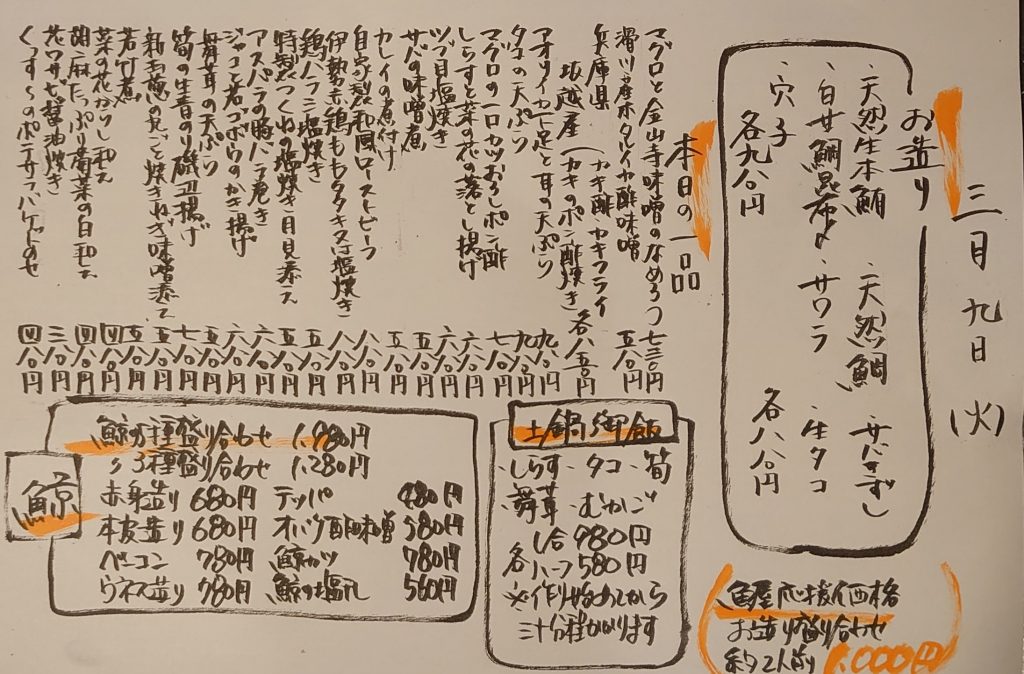 三月九日(火)
お造り
・天然生本鮪 ・天然鯛 ・サバきずし
・白甘鯛昆布〆 ・サワラ ・生タコ
・穴子
各九八〇円 各八八〇円
本日の一品
マグロと金山寺味噌のなめろう 七三〇円
滑川産ホタルイカ酢味噌 五八〇円
兵庫県 坂越産 (カキ酢 カキフライ カキのポン酢焼き 各八五〇円
アオリイカ一足と耳の天ぷら 九八〇円
タコの天ぷら 九八〇円
マグロの一口カツおろしポン酢 七八〇円
しらすと菜の花の落とし揚げ 六八〇円
ツブ貝塩焼き 六八〇円
サバの味噌煮 五八〇円
カレイの煮付け 五八〇円
自家製和風ローストビーフ 八八〇円
伊勢赤鶏ももタタキ又は塩焼き 八八〇円
鶏ハラミ塩焼き 五八〇円
特製つくねの塩焼き目見添え 五八〇円
アスパラの豚バラ巻き 六八〇円
ジャコと若ゴボウのかき揚げ 六八〇円
舞茸の天ぷら 五八〇円
筍の生青のり磯辺揚げ 七八〇円
新玉葱の丸ごと焼きねぎ味噌添え 五八〇円
若竹煮 五八〇円
菜の花からし和え 四八〇円
胡麻たっぷり菊菜の白和え 四八〇円
花ワサビ醤油焼き 三八〇円
くっすーのポテサラバゲットのせ 四八〇円
土鍋御飯
・しらす ・タコ ・筍
・舞茸 ・むかご
各 一合 980円
ハーフ 580円
※作り始めてから
三十分程かかります
鯨
鯨5種盛り合わせ 1,980円
〃3種盛り合わせ 1,280円
赤身造り 680円 テッパ 480円
本皮造り 680円 オバケ酢味噌 580円
ベーコン 780円 鯨カツ 780円
ウネス造り 780円 鯨の塩 560円
魚屋応援価格
お造り盛り合わせ
約2人前 1,000円